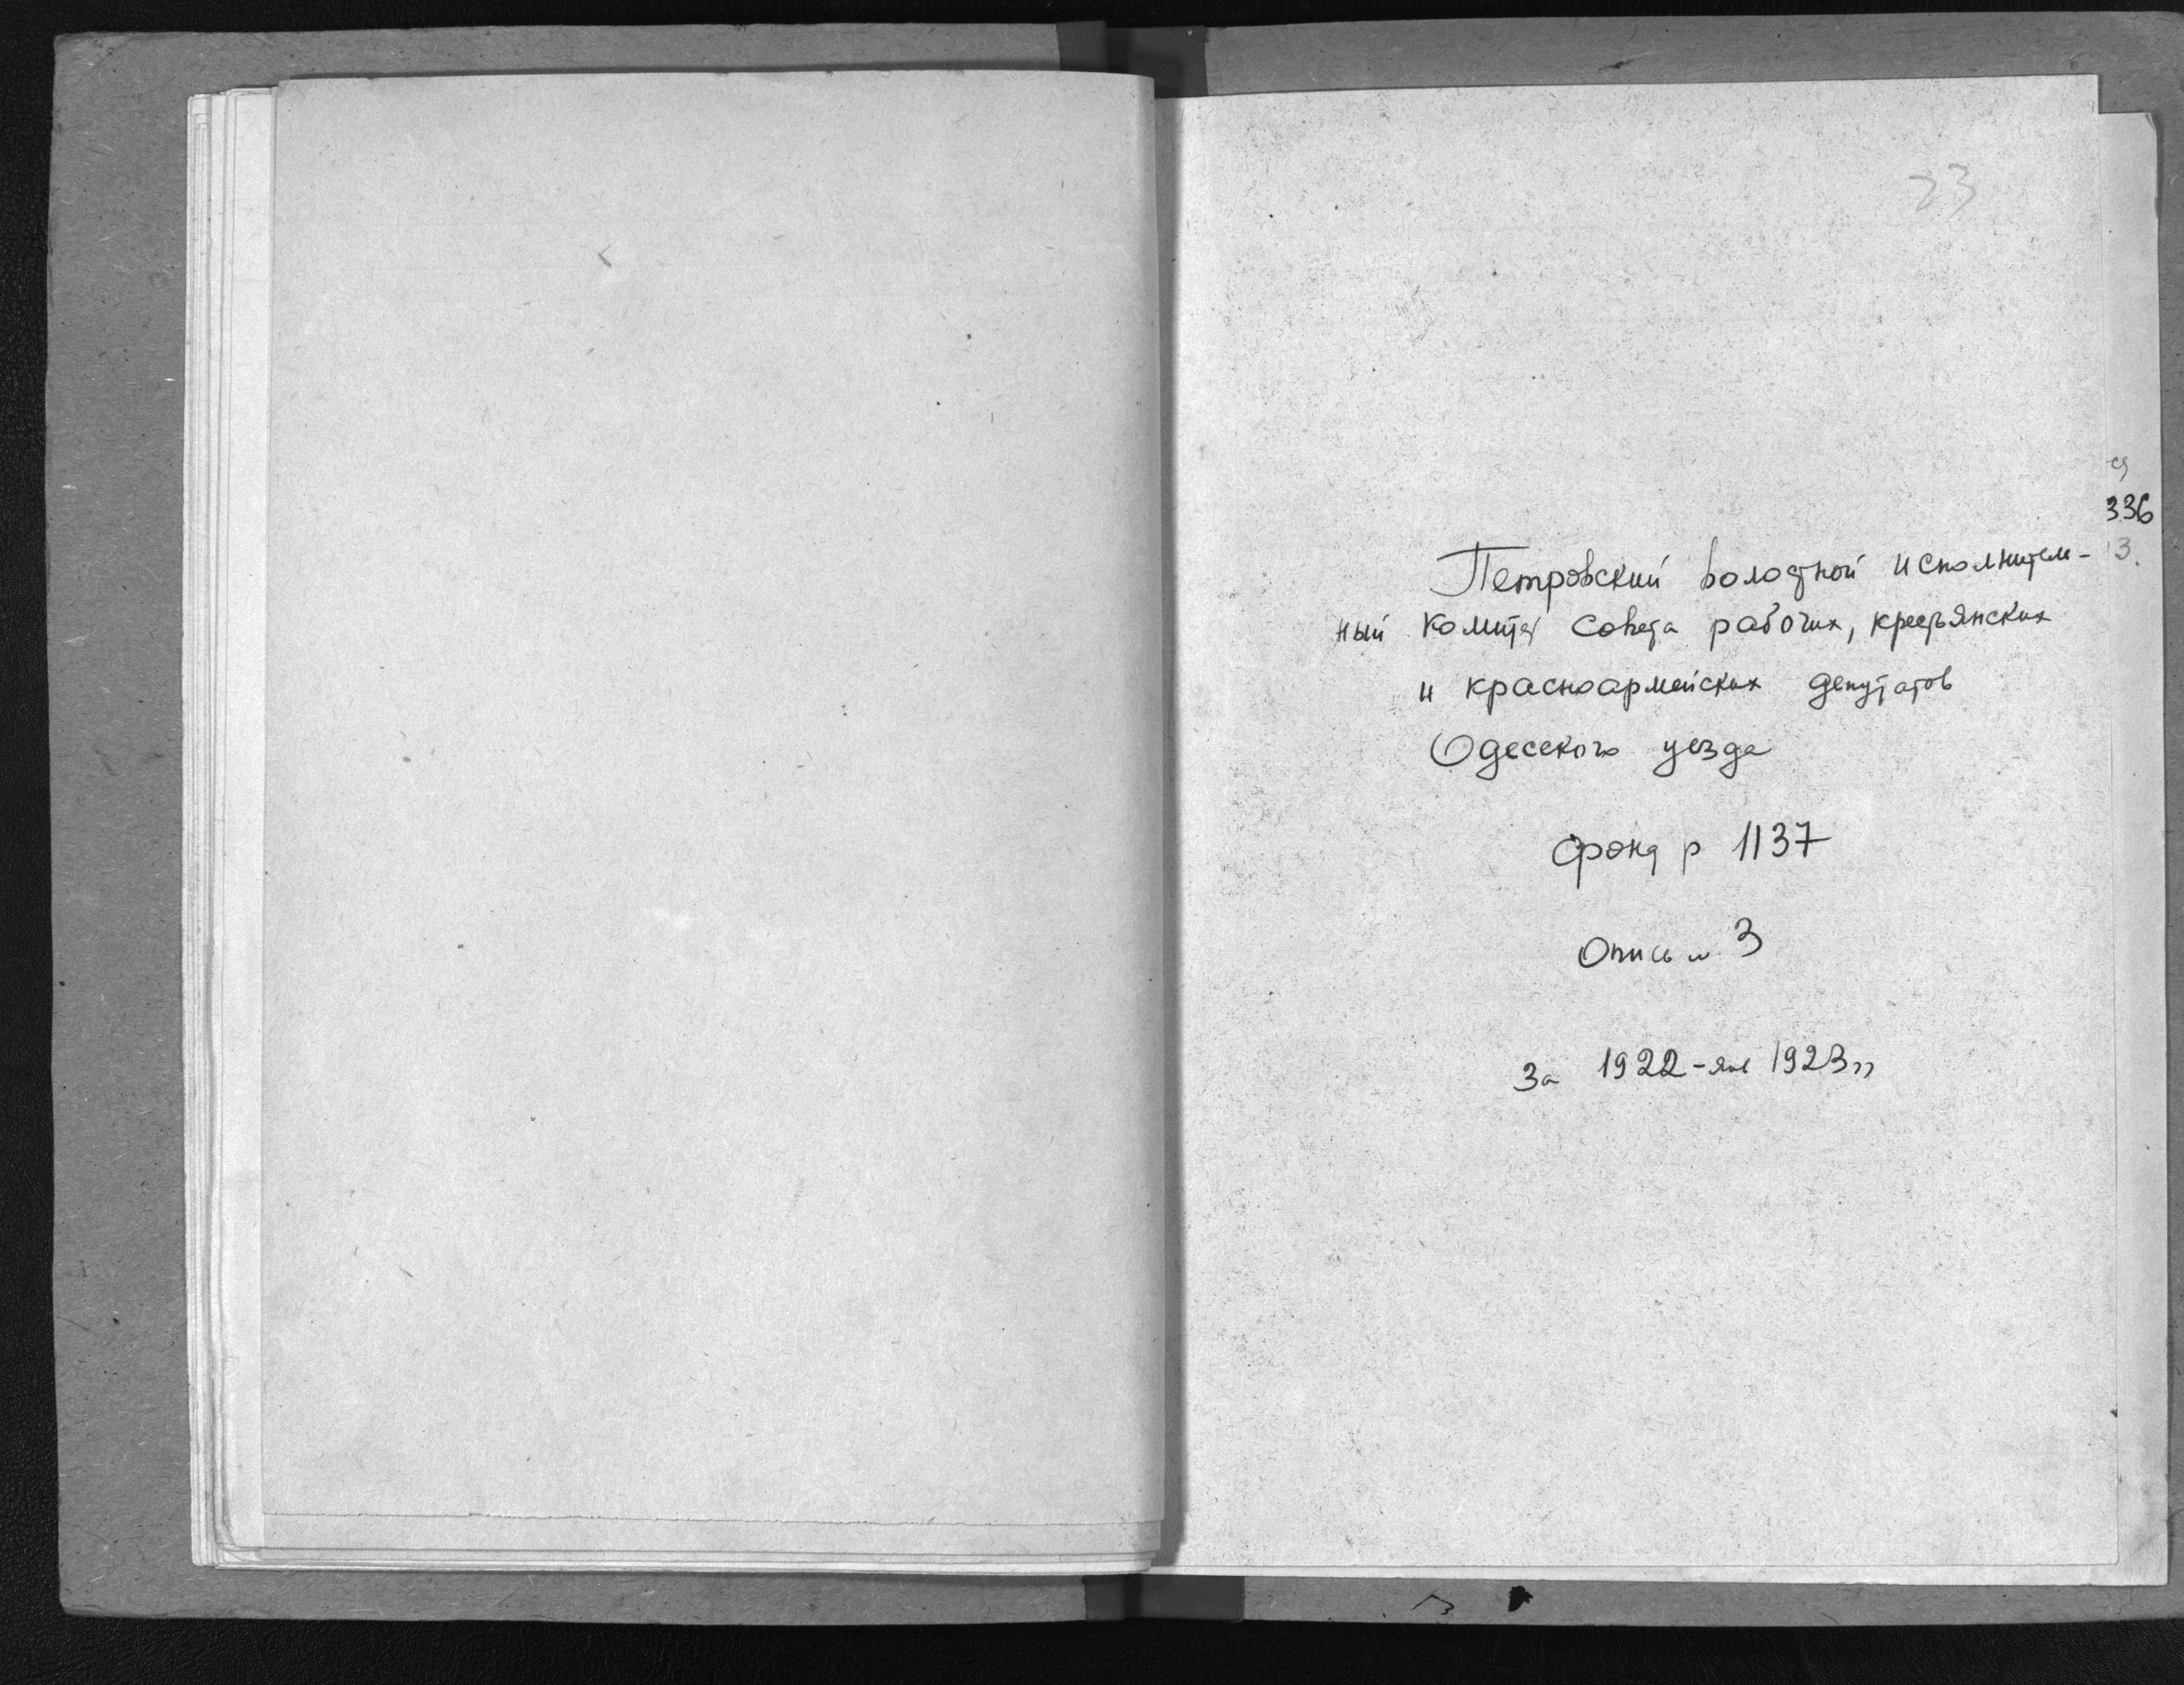 23
Петровский волостной исполнитель-
ный комитет Совета рабочих, крестьянских
и красноармейских депутатов
Одесского уезда
Фонд р 1137
Опись № 3
За 1922 - янв 1923 гг
336
3.